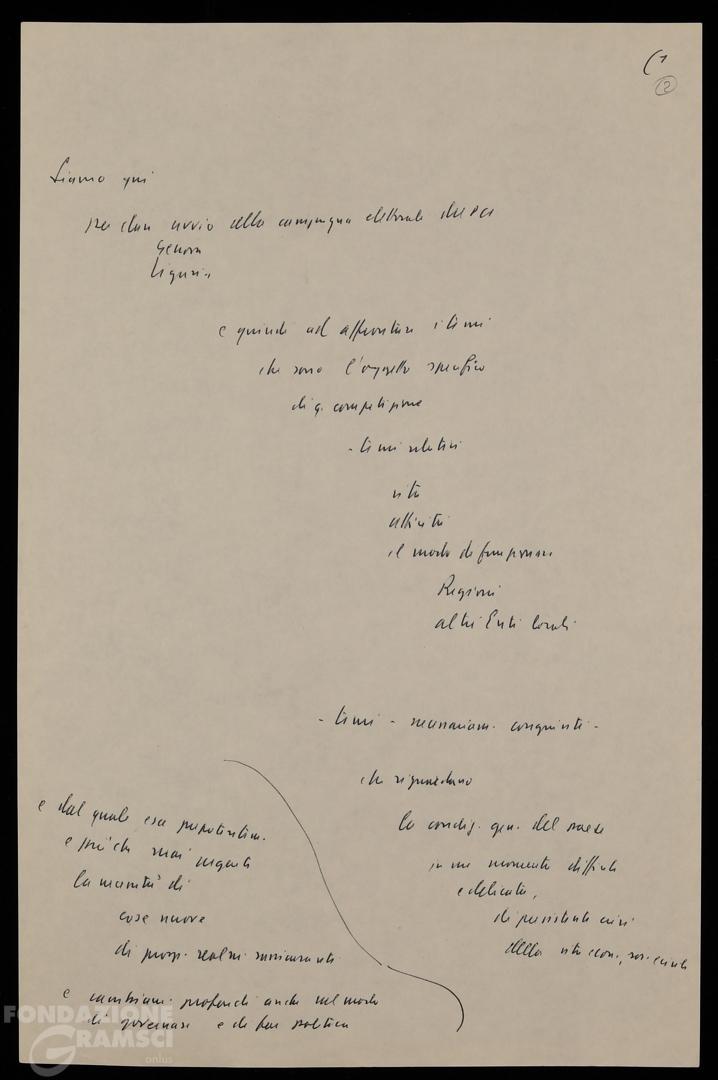 (1
2
Siamo qui
per dare avvio alla campagna elettorale del PCI
Genova
Liguria
e quindi ad affrontare i temi
che sono l'oggetto specifico
di q. competizione
- temi relativi
vita
attività
il modo di funzionare
Regioni
altri Enti locali
- temi - necessariam. congiunti -
che riguardano
la condiz. gen. del paese
in un momento difficile
e delicato,
di persistente crisi
della vita econ., sociale
e dal quale esce prepotentem.
e più che mai urgente
la necessità di
cose nuove
di prosp. realm.
e cambiam. profondi anche nel modo
di governare e di far politica
FONDAZIONE
GRAMSCI
onlus